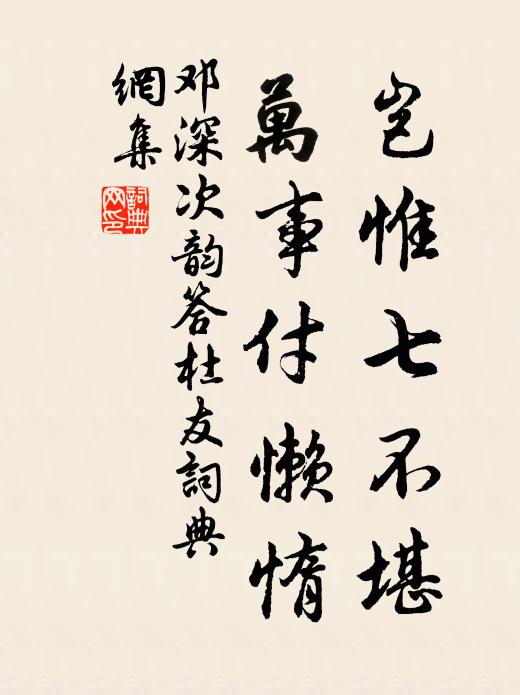 岂惟七不堪
萬事付懒惰
邓深次韵答杜友詞典
網集
詞典
网印